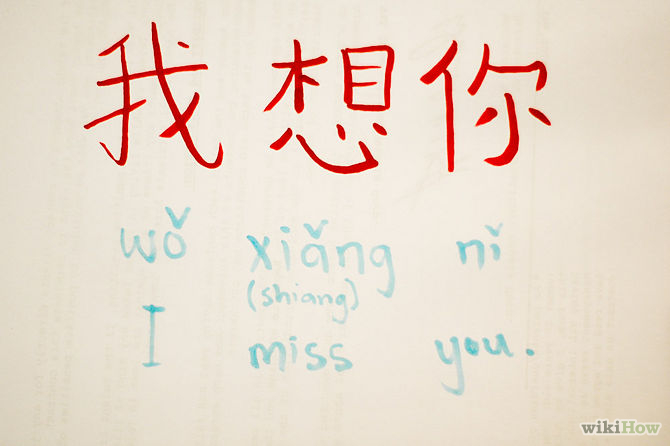 我 想 你
wǒ xiǎng nǐ
(shiang)
I miss you.
wikiHow